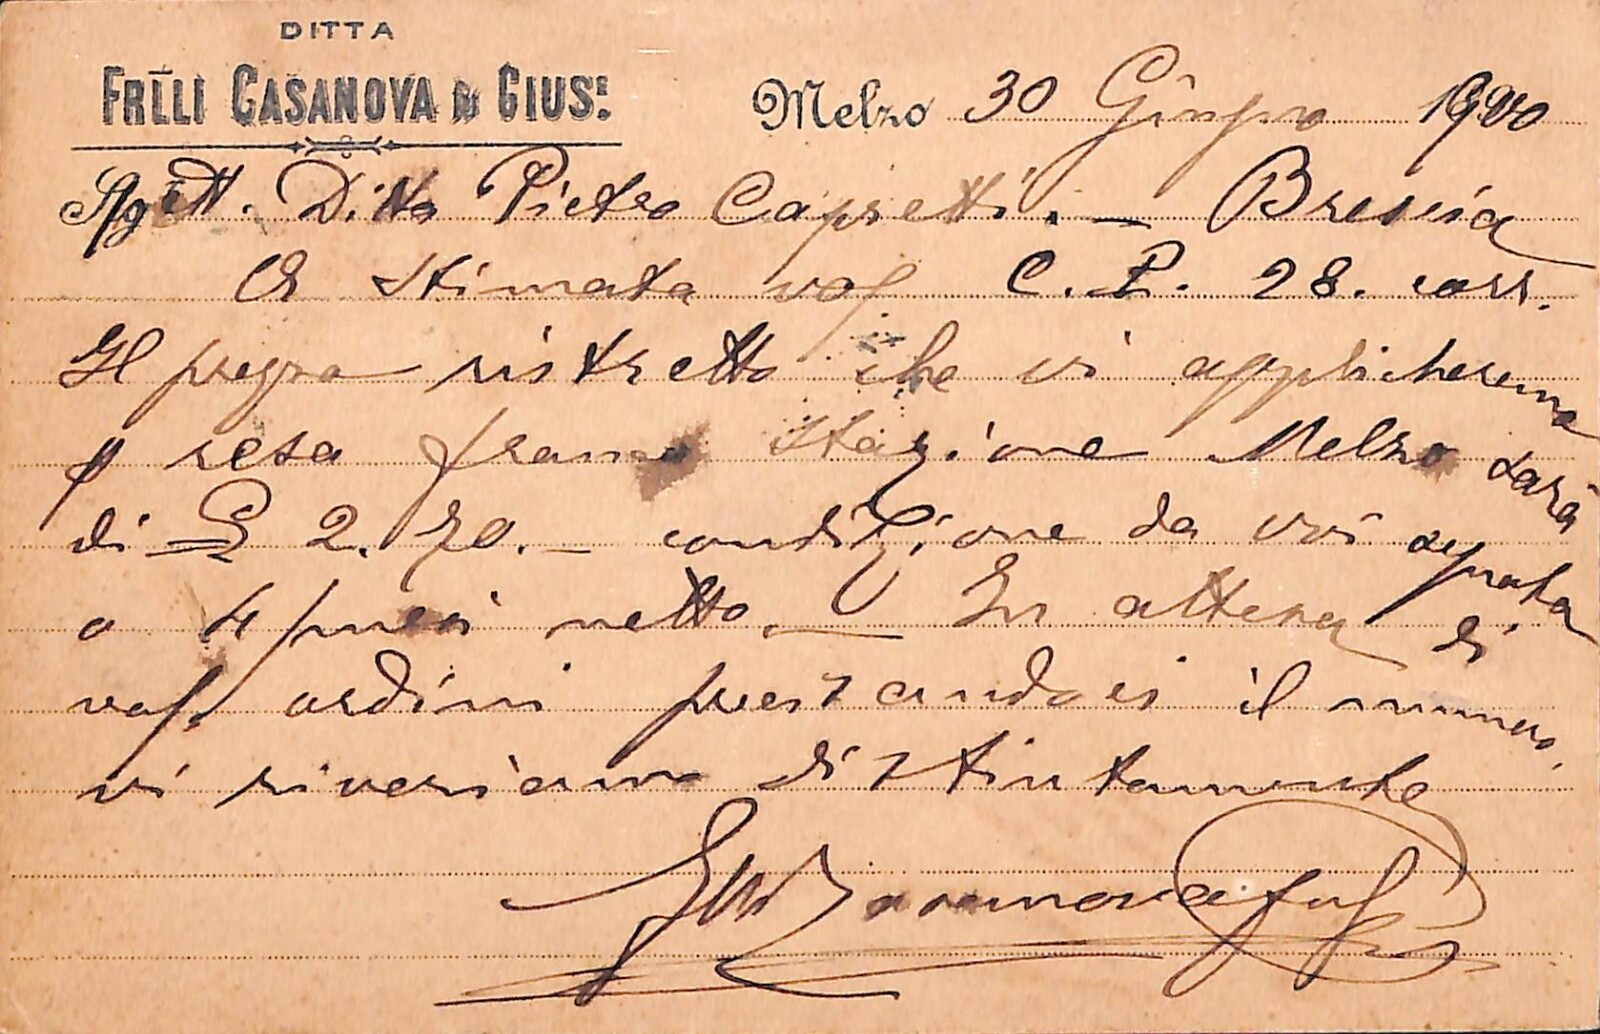 DITTA
FR.LLI CASANOVA DI GIUS.E
Melzo 30 Giugno 1900
Ditta Pietro Capretti. — Brescia
A stimata vos. C. P. 28. corr.
Il prezzo ristretto che vi applicheremo
p resa franco stazione Melzo sarà
di £ 2.70. — condizione da voi
a 4 mesi netto. — In attesa di
vos. ordini il numero,
vi riveriamo distintamente
Casanova